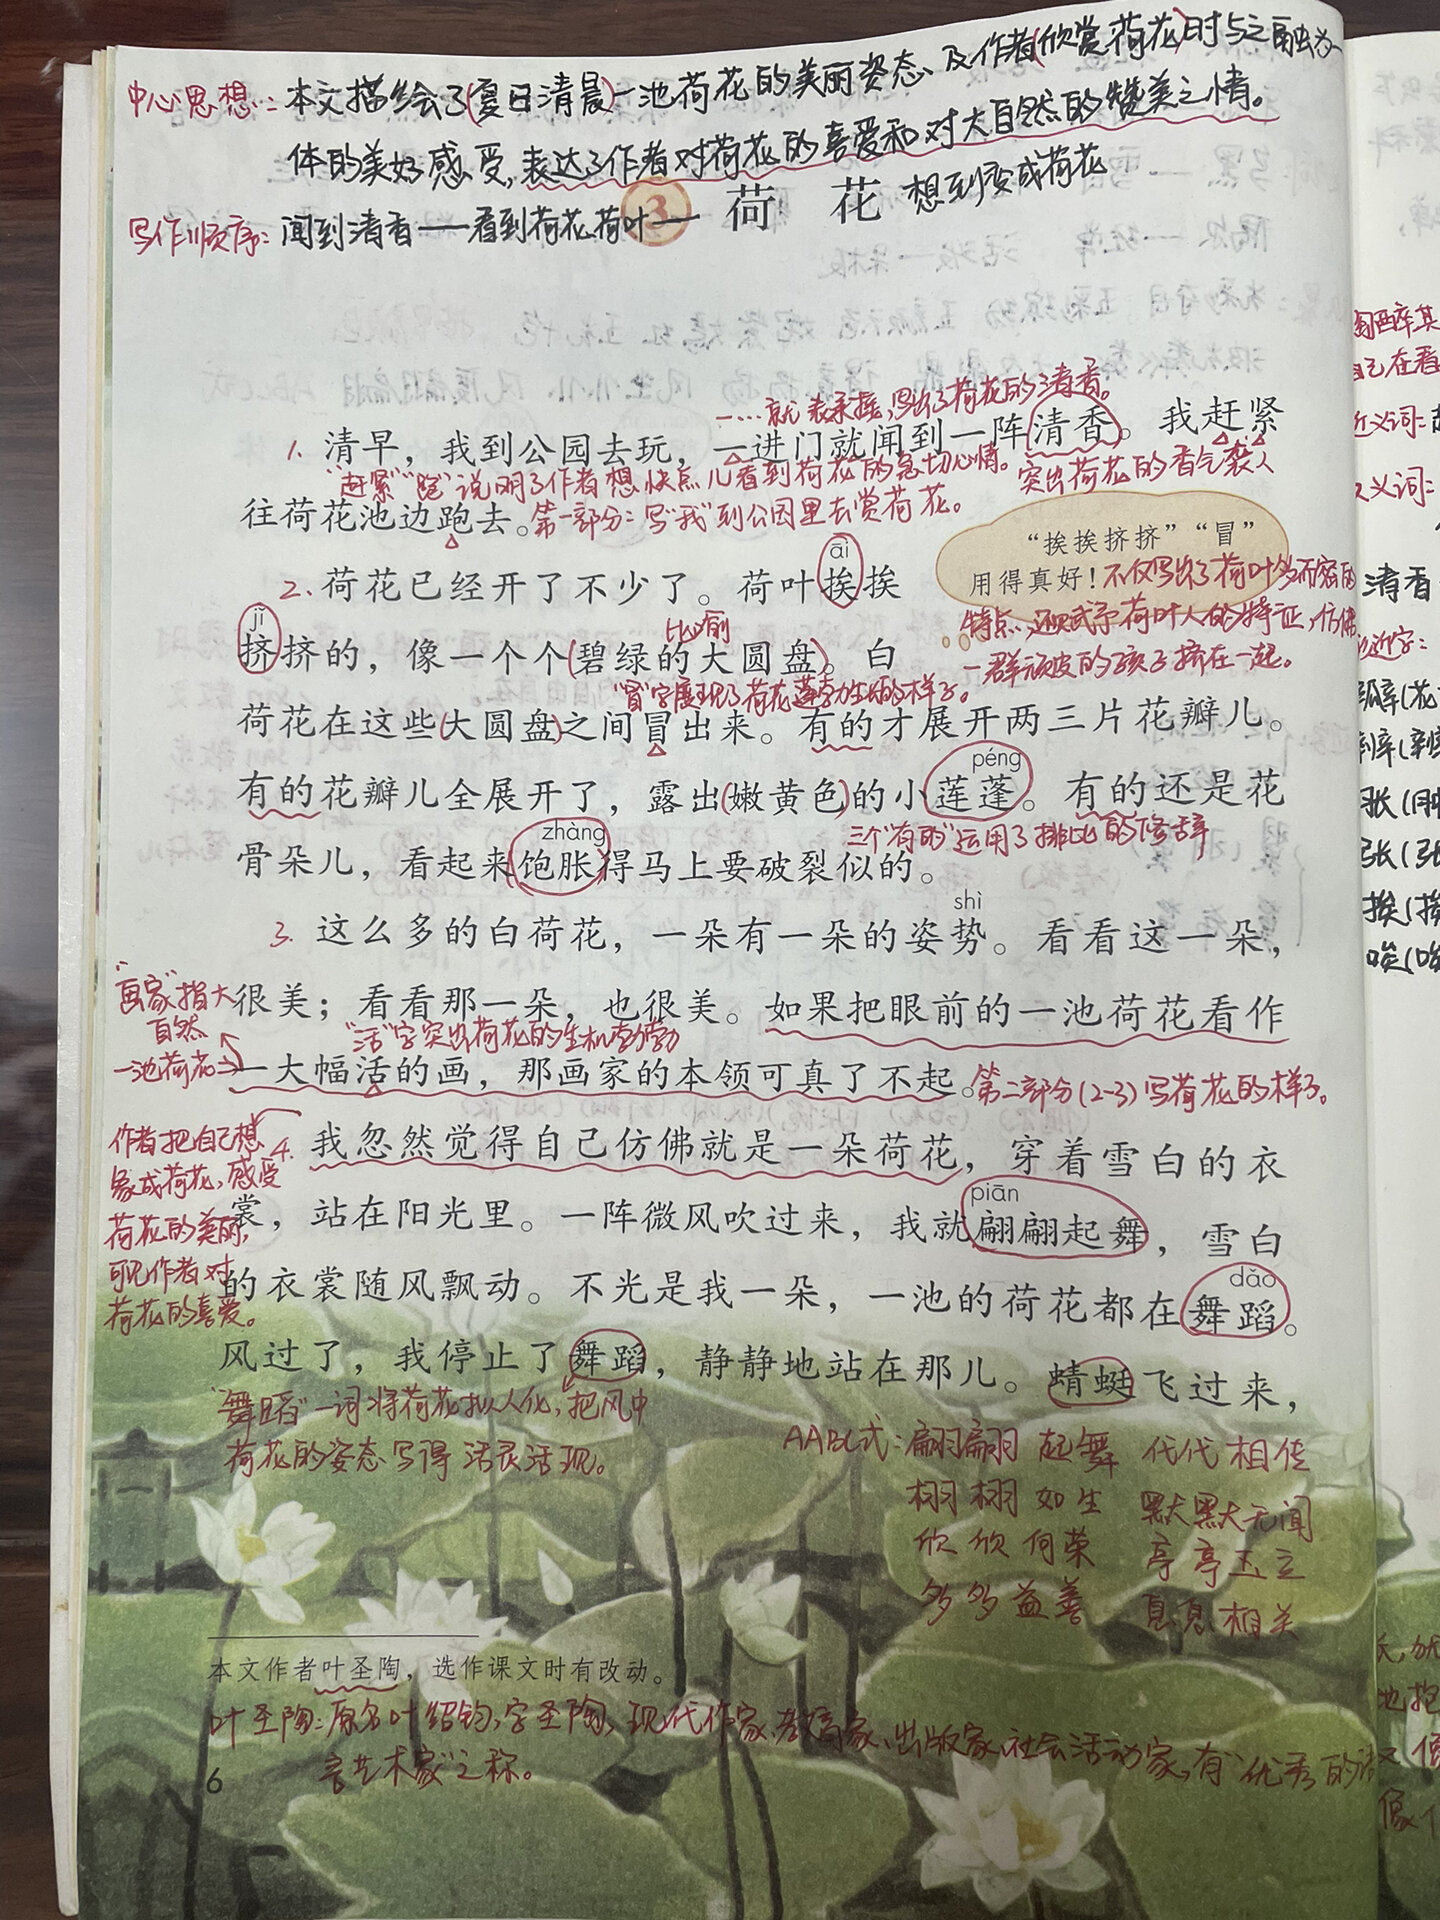 中心思想：本文描绘了(夏日清晨)一池荷花的美丽姿态、及作者(欣赏荷花)时与之融为一
体的美好感受，表达了作者对荷花的喜爱和对大自然的赞美之情。
3 荷 花
写作顺序：闻到清香——看到荷花荷叶——想到变成荷花
一…就 表承接，写出了荷花的清香。
1. 清早，我到公园去玩，一进门就闻到一阵清香。我赶紧
"赶紧""跑"说明了作者想快点儿看到荷花的急切心情。
突出荷花的香气袭人
往荷花池边跑去。
第一部分：写"我"到公园里去赏荷花。
“挨挨挤挤”“冒”
用得真好！
不仅写出了荷叶多而密的
特点，还赋予荷叶人的特征，仿佛
一群顽皮的孩子挤在一起。
āi
2. 荷花已经开了不少了。荷叶挨挨
jǐ
比喻
挤挤的，像一个个(碧绿的大圆盘)。白
"冒"字展现了荷花蓬勃生长的样子。
荷花在这些(大圆盘)之间冒出来。有的才展开两三片花瓣儿。
péng
有的花瓣儿全展开了，露出(嫩黄色)的小莲蓬。有的还是花
zhàng
三个"有的"运用了排比的修辞
骨朵儿，看起来饱胀得马上要破裂似的。
shì
3. 这么多的白荷花，一朵有一朵的姿势。看看这一朵，
"画家"指大
自然
很美；看看那一朵，也很美。如果把眼前的一池荷花看作
"活"字突出荷花的生机勃勃
一池荷花→
一大幅活的画，那画家的本领可真了不起。
第二部分(2-3)写荷花的样子。
作者把自己想
象成荷花，感受
荷花的美丽，
可见作者对
荷花的喜爱。
4. 我忽然觉得自己仿佛就是一朵荷花，穿着雪白的衣
piān
裳，站在阳光里。一阵微风吹过来，我就翩翩起舞，雪白
dǎo
的衣裳随风飘动。不光是我一朵，一池的荷花都在舞蹈。
风过了，我停止了舞蹈，静静地站在那儿。蜻蜓飞过来，
"舞蹈"一词将荷花拟人化，把风中
荷花的姿态写得活灵活现。
AABC式：翩翩起舞 代代相传
栩栩如生 默默无闻
欣欣向荣 亭亭玉立
多多益善 息息相关
本文作者叶圣陶，选作课文时有改动。
叶圣陶：原名叶绍钧，字圣陶，现代作家、教育家、出版家、社会活动家，有"优秀的语
言艺术家"之称。
6
陶醉其
自己在看
近义词：
义词：
清香
形近字：
瓣(花
辩(
胀(
张(张
挨(挨
唉(唉